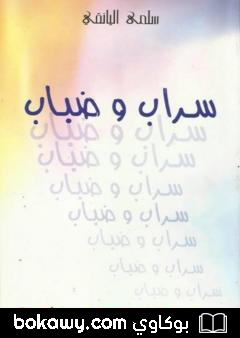 سلمى اليانقي
سراب و ضباب
سراب و ضباب
سراب و ضباب
سراب و ضباب
سراب و ضباب
سراب و ضباب
سراب و ضباب
سراب و ضباب
بوكاوي bokawy.com